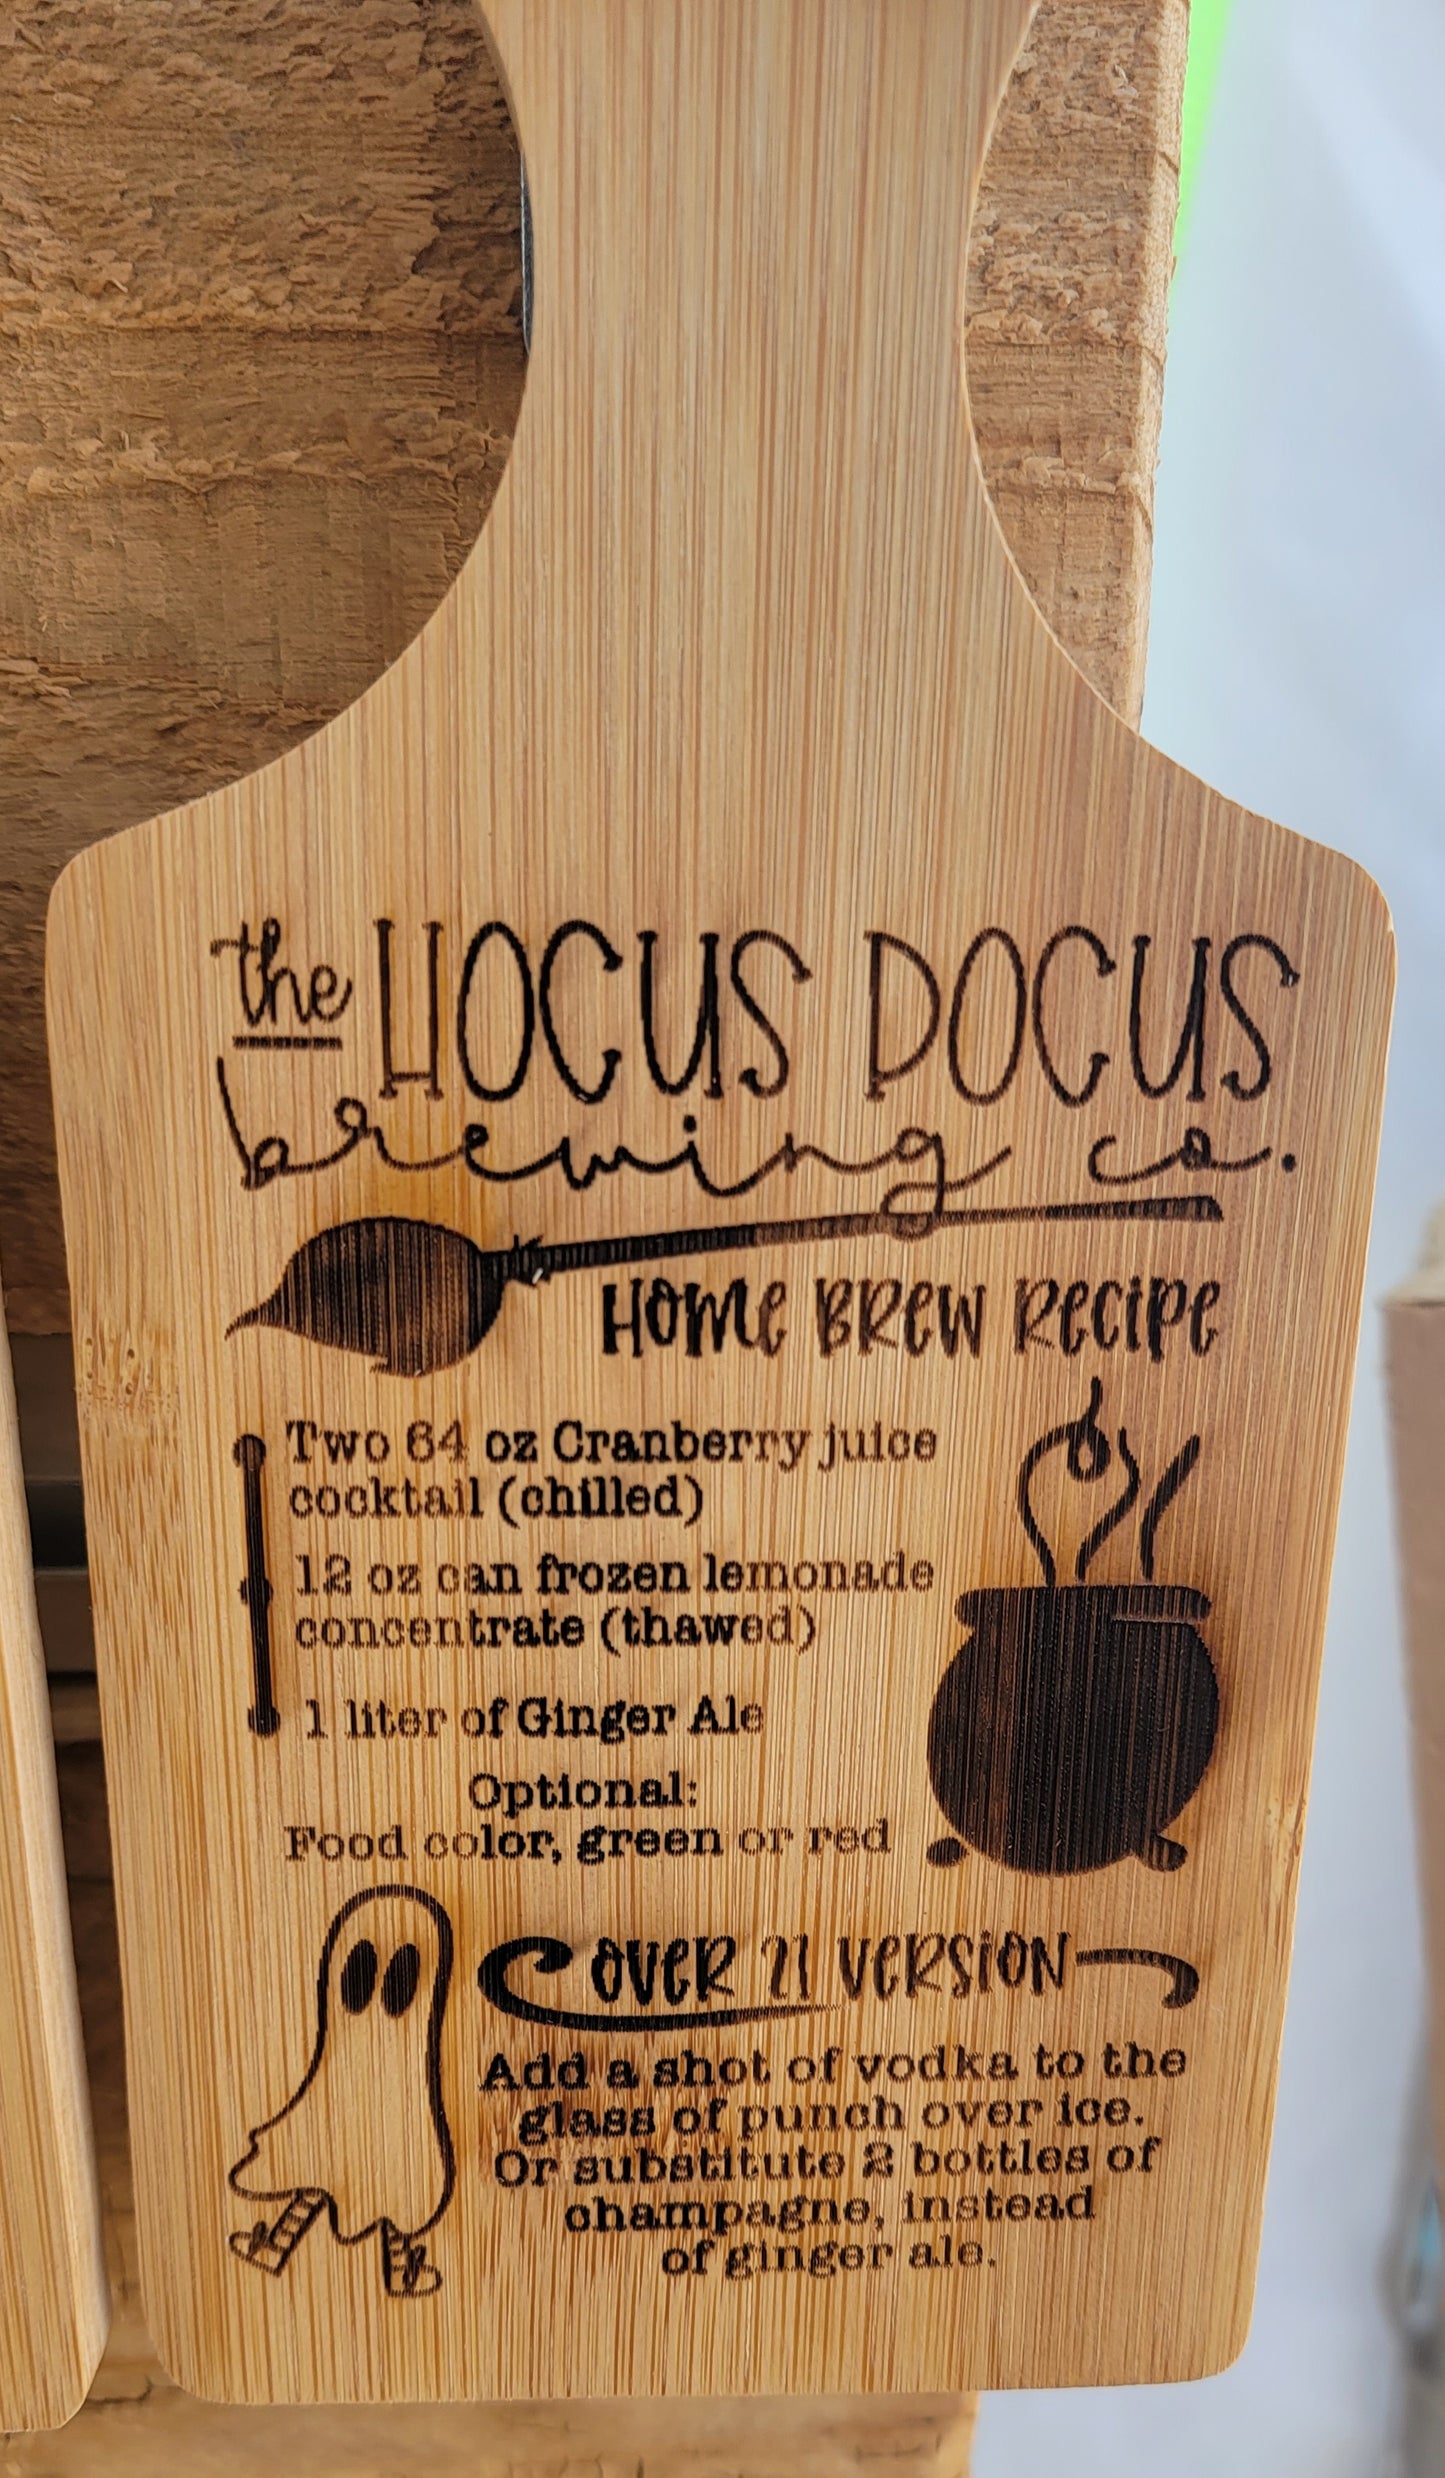 the HOCUS POCUS
brewing co.
HOME BREW RECIPE
Two 64 oz Cranberry juice
cocktail (chilled)
12 oz can frozen lemonade
concentrate (thawed)
1 liter of Ginger Ale
Optional:
Food color, green or red
OVER 21 VERSION
Add a shot of vodka to the
glass of punch over ice.
Or substitute 2 bottles of
champagne, instead
of ginger ale.